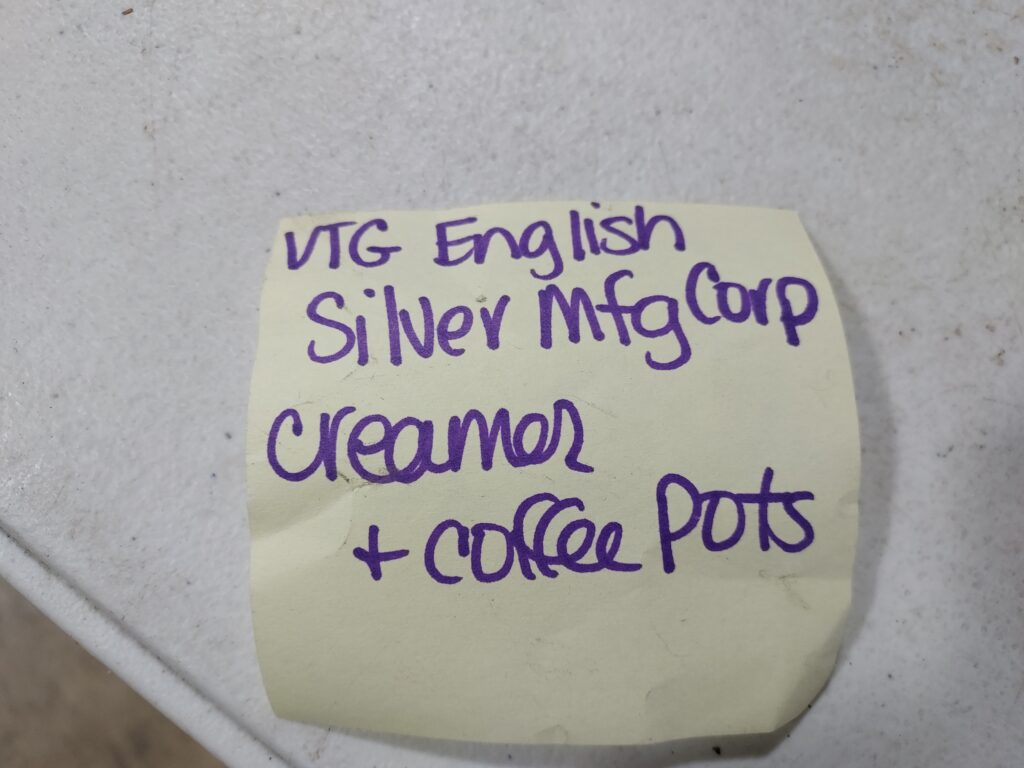 VTG English
Silver Mfg Corp
creamer
+ coffee pots